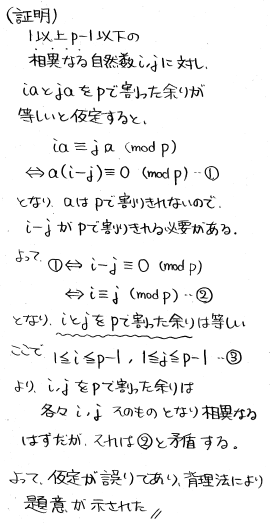 (証明)
1以上 p-1以下の
相異なる自然数i,jに対し、
iaとjaをpで割った余りが
等しいと仮定すると、
ia≡ja (mod p)
⇔a(i-j)≡0 (mod p)…①
となり、aはpで割りきれないので、
i-jがpで割りきれる必要がある。
よって ①⇔ i-j≡0 (mod p)
⇔ i≡j (mod p)…②
となり、iとjをpで割った余りは等しい
ここで 1≦i≦p-1, 1≦j≦p-1 …③
より、i,jをpで割った余りは
各々i,jそのものとなり相異なる
はずだが、それは②と矛盾する。
よって、仮定が誤りであり、背理法により
題意が示された〃